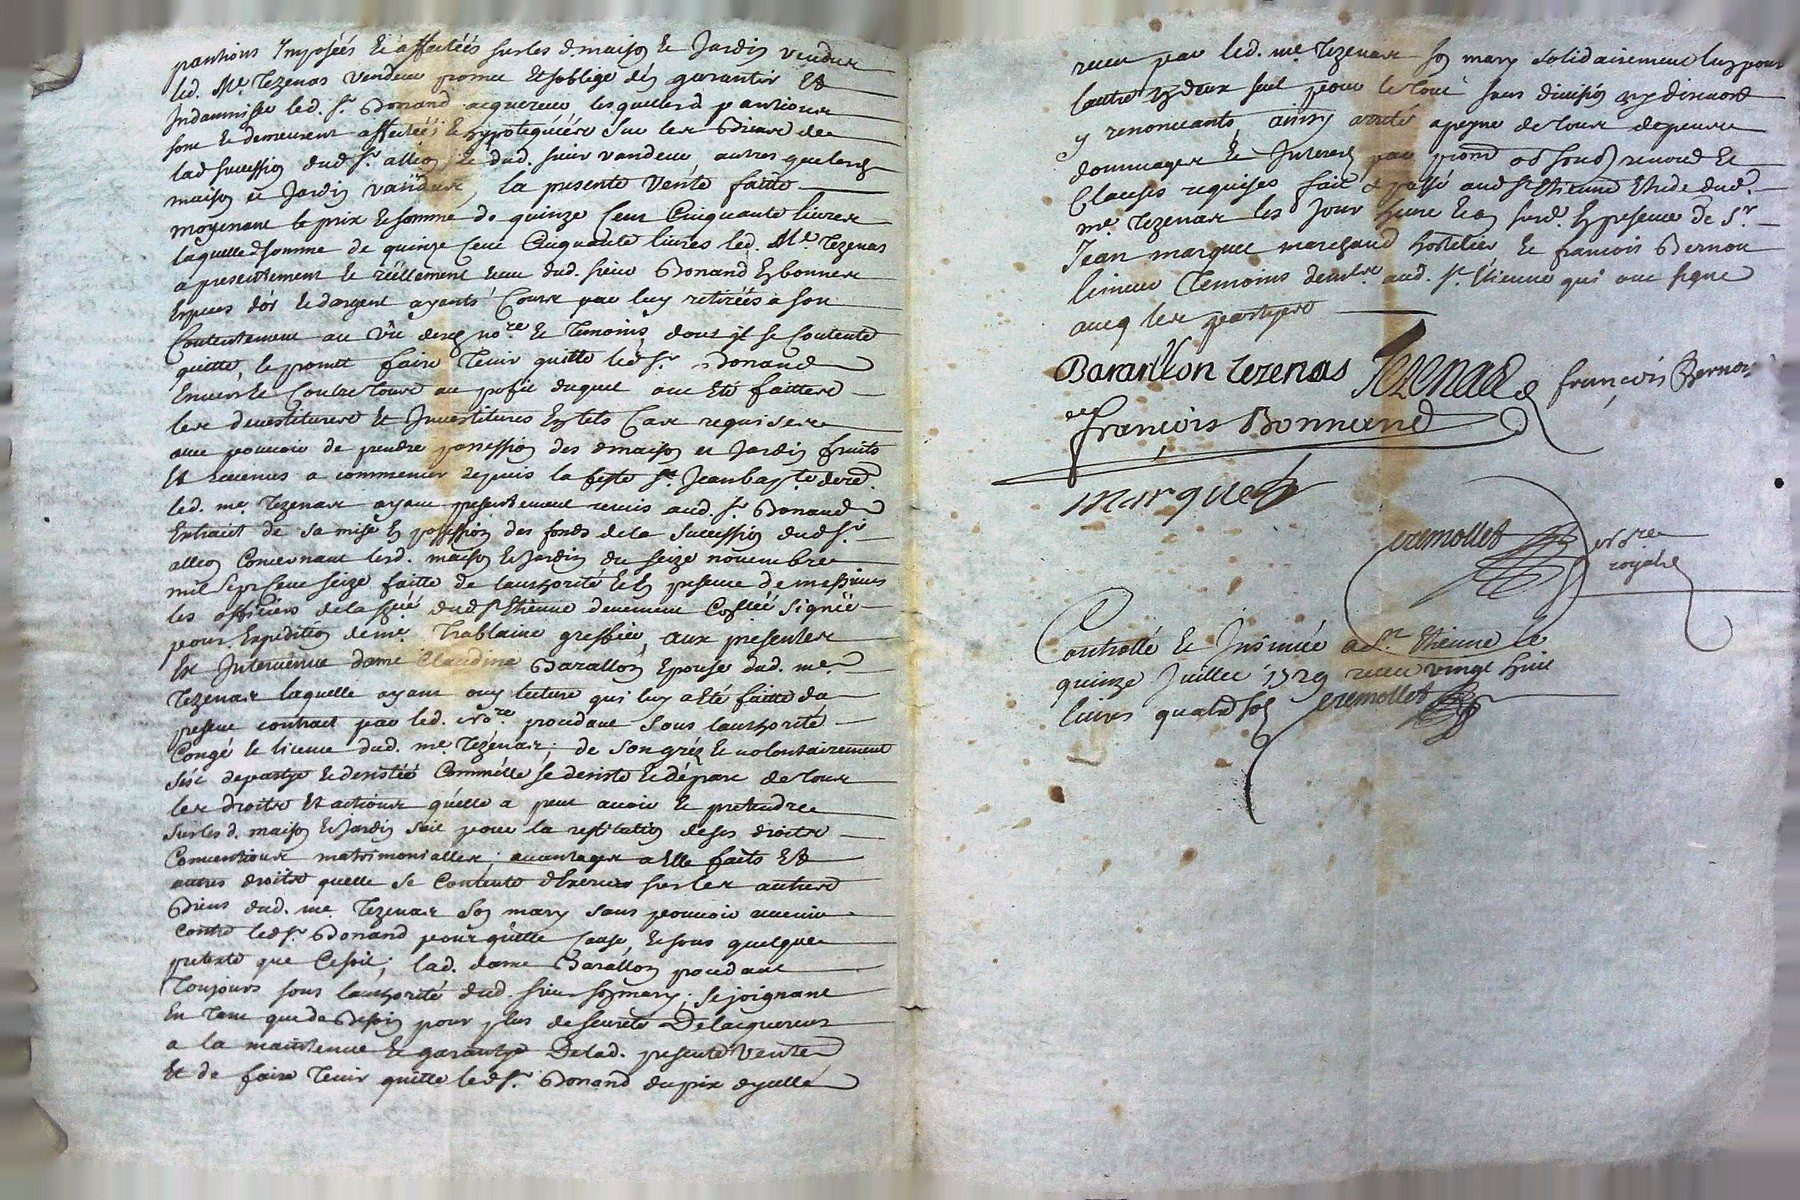 pantions Imposéés & affectéés sur les d. maison & Jardin vendus
led. Me. Tezenas vendeur promet Et soblige dén garantir Et
Indamniser led. Sr. Bonand acquereur lesquelles d. pantions
sont & demeurent affectéés & hypotequéés sur les Biens de
lad succession dud. Sr. alleon & dud. sieur vandeur, autres que lesd.
maison & Jardin vandus, la presente vente faitte
moyenant le prix & somme de quinze Cent Cinquante livres
laquelle d. somme de quinze Cent Cinquante livres led. Me. Tezenas
a presentement & réellement receu dud. sieur Bonand En bonnes
Especes dór & dargent ayants Cours par luy retiréés a son
Contentement au Vû desd. nore. & Temoins, dont il se Contente
quitte, & promet faire Tenir quitte led. Sr. Bonand
Envers & Contre tous au profit duquel ont Eté faittes
les devestitures Et Investitures En tels Cas requises
avec pouvoir de prendre possession des d. maison et Jardin fruits
Et revenus a commencer depuis la feste St. Jean bapte. derre.
led. me. Tezenas ayant presentement remis aud. Sr. Bonand
Extrait de sa mise En possession des fonds de la succession dud. Sr.
alleon Concernant lesd. maison & Jardin du seize novembre
mil sept Cent seize faitte de lauthorité & En presence de messieurs
les officiers de la dud. St. Etienne deuement signéé
pour Expedition de me. Trablaine greffier, aux presentes
Est Intervenue dame Claudine Barallon Epouse dud. me.
Tezenas laquelle ayant ouy lecture qui luy a Eté faitte du
present contract par led. Nore. procedant sous lauthorité
Congé & licence dud. me. Tezenas; de son gré & volontairement
sést departye & desistéé Comme elle se desiste & départ de tous
les droits Et actions quélle a peut avoir & pretendre
sur les d. maison & Jardin soit pour la repetition de ses droits
Conventions matrimonialles, avantages a Elle faits Et
autres droits quelle se Contente dExercer sur les autres
Biens dud. me. Tezenas son mary sans pouvoir revenir
Contre led. Sr. Bonand pour quelle Cause, & sous quelque
pretexte que Ce soit; lad. dame Barallon procedant
Toujours sous lauthorité dud. sieur son mary; se joignant
En Tant que de Besoin pour plus de seureté De lacquereur
a la maintenue & garantye De lad. presente vente
Et de faire Tenir quitte led. Sr. Bonand du prix dycelle
receu par led. me. Tezenas son mary solidairement lun pour
lautre un deux seul pour le Tout sans division ny discution
y renonceants, ainsy arreté apeyne de tous depens
dommages & Interets par prom. renond. &
Clauses requises fait & passé aud St. Etienne Etude dud.
me. Tezenas les Jour heure & an susd. En presence de Sr.
Jean marquet marchand hostelier & francois Bernou
limeur Temoins demts. aud. St. Etienne qui ont signé
avecq les partyes
Baraillon tezenas Tezenas françois Bernou
françois Bonnand
marquet
cremollet Nore
royal
Controllé & Insinué a St. Etienne le
quinze Juillet 1729 receu vingt huit
livres quatre sols cremollet